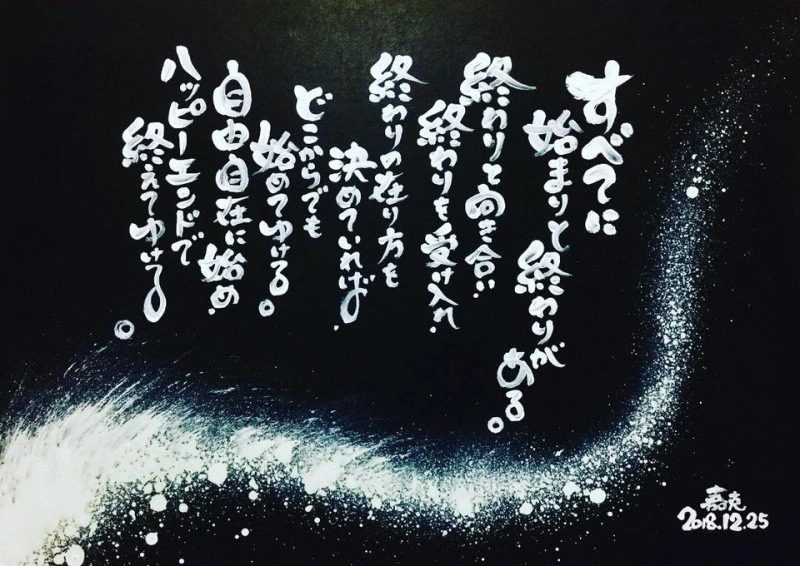 すべてに
始まりと終わりが
ある。
終わりと向き合い
終わりを受け入れ
終わりの在り方を
決めていれば
どこからでも
始めてゆける。
自由自在に始め
ハッピーエンドで
終えてゆける。
嘉克
2018.12.25